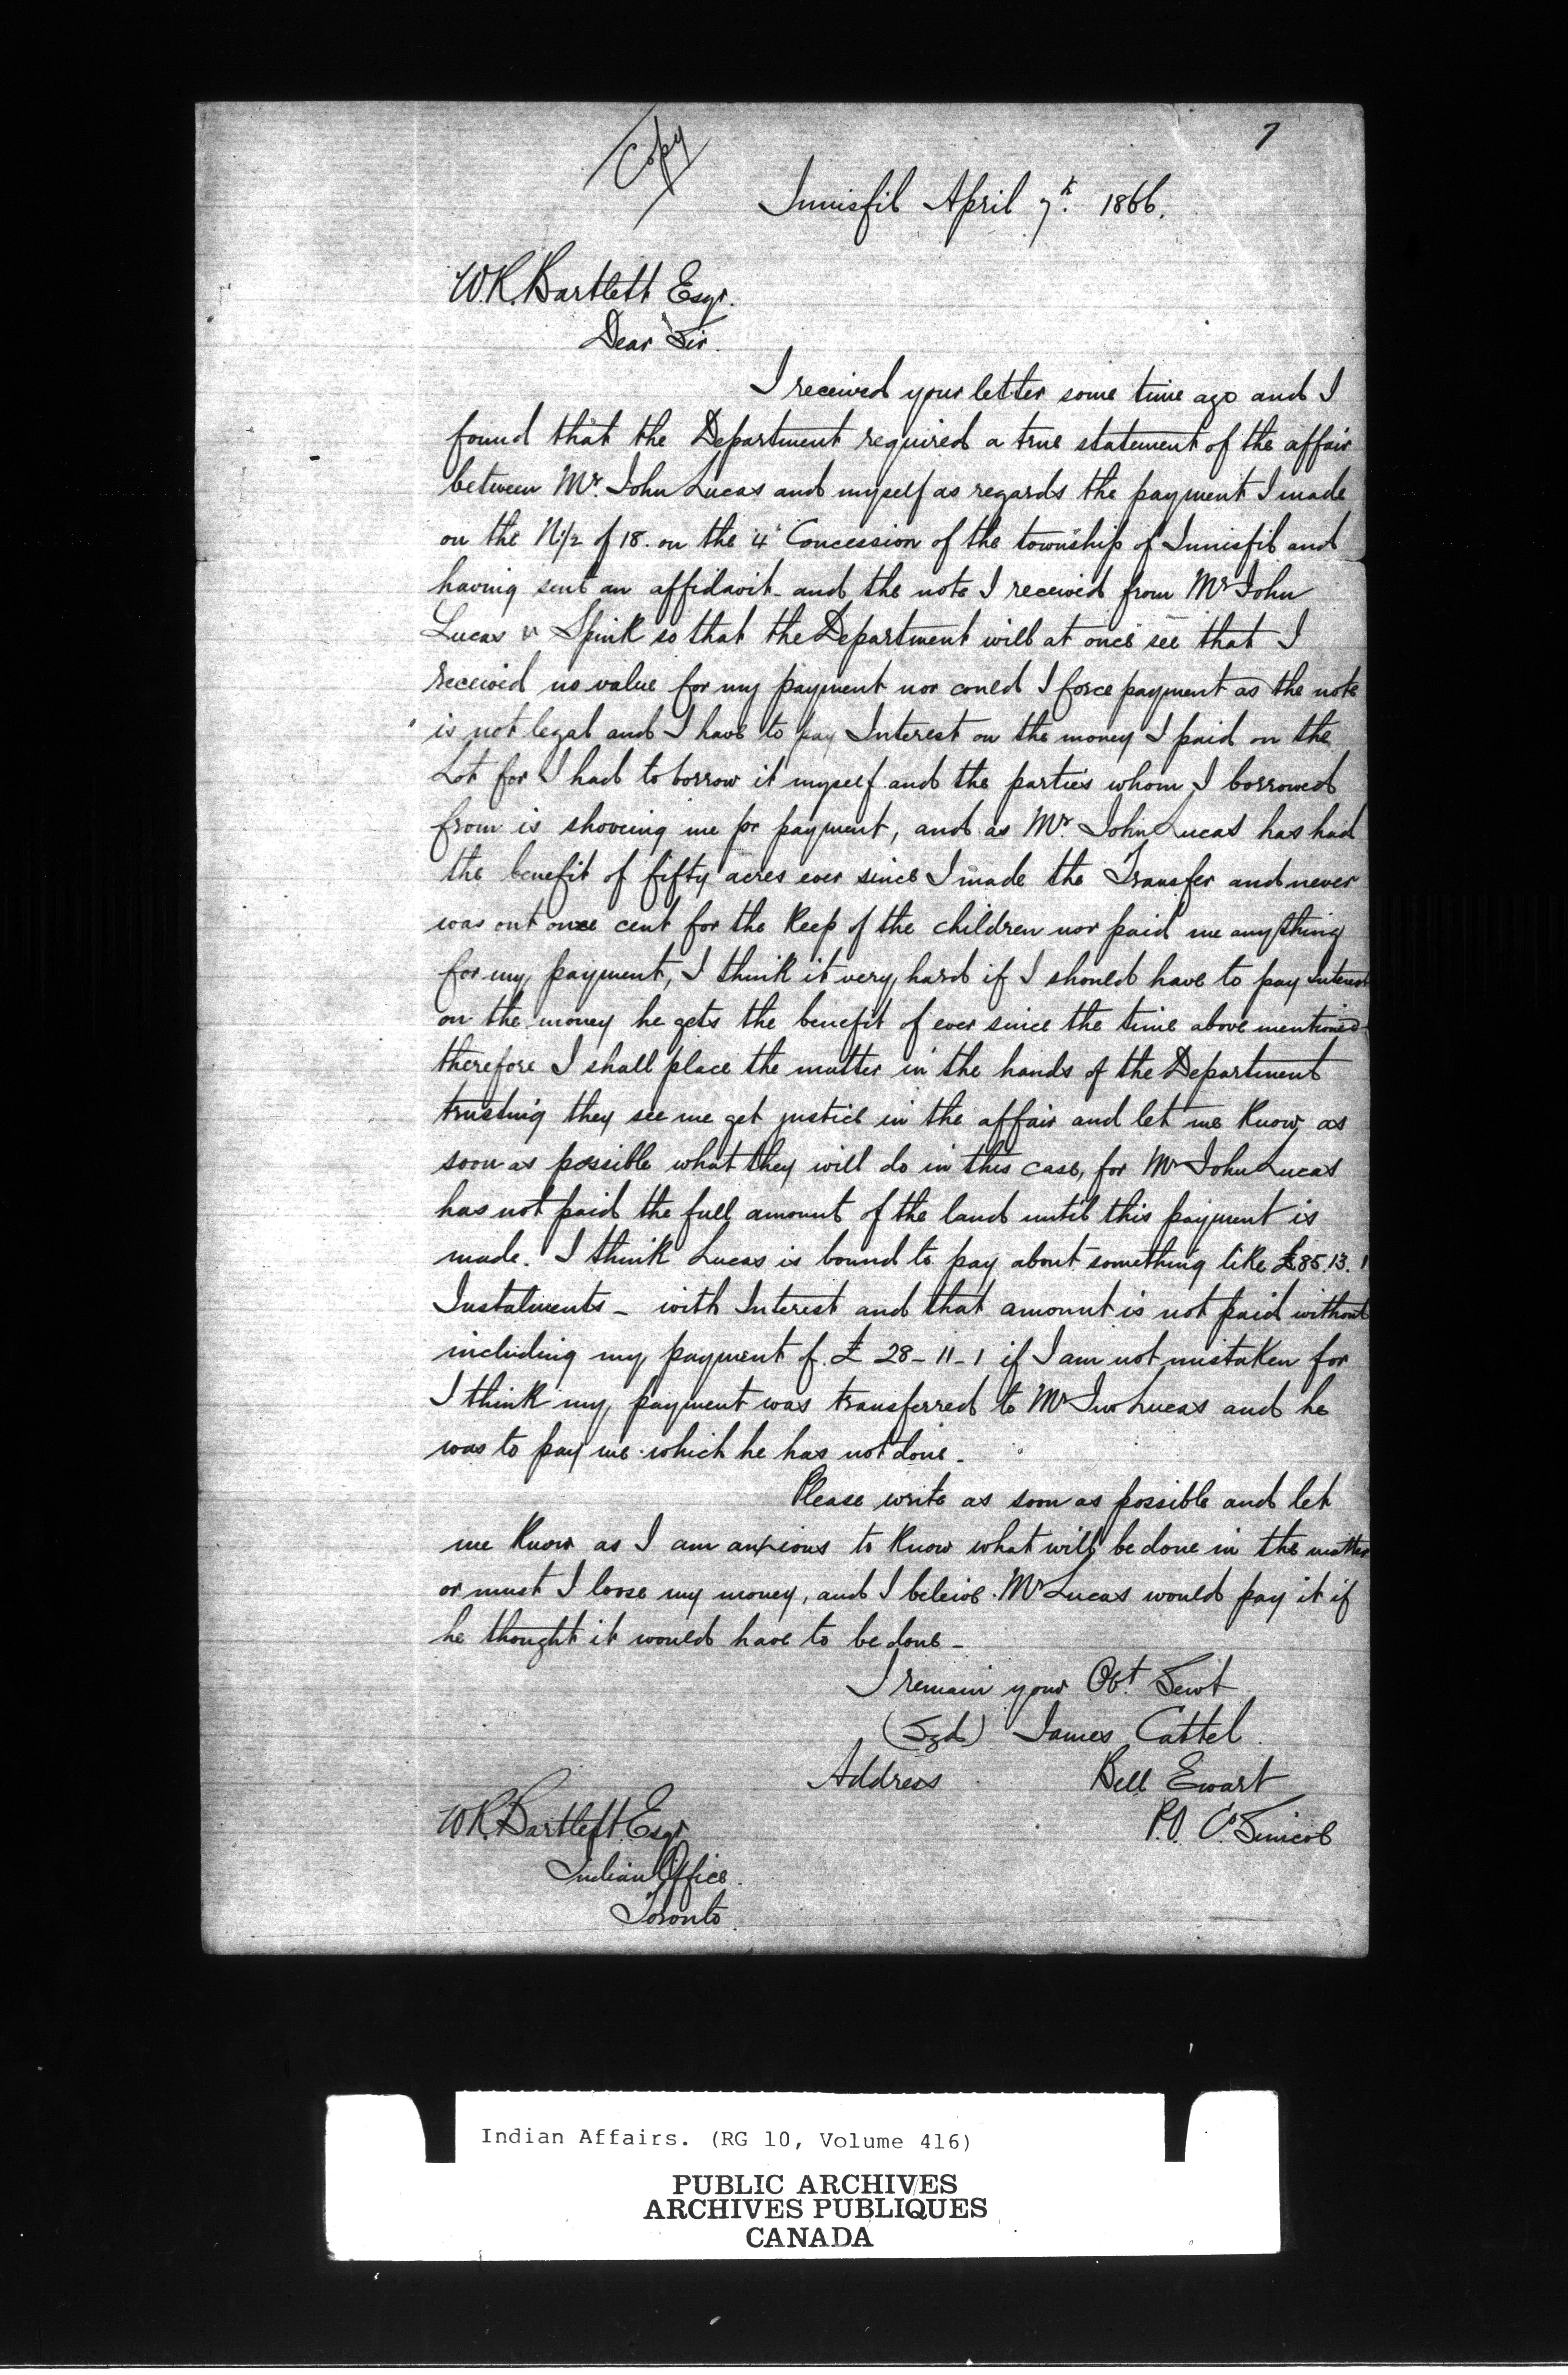 Copy
7
Innisfil April 7th 1866.
W.R. Bartlett Esqr.
Dear Sir.
I received your letter some time ago and I
found that the Department required a true statement of the affair
between Mr. John Lucas and myself as regards the payment I made
on the N1/2 of 18. on the 4" Concession of the township of Innisfil and
having sent an affidavit and the note I received from Mr John
Lucas Spink so that the Department will at once see that I
received no value for my payment nor could I force payment as the note
is not legal and I have to pay Interest on the money I paid on the
Lot for I had to borrow it myself and the parties whom I borrowed
from is shoveing me for payment, and as Mr. John Lucas has had
the benefit of fifty acres ever since I made the Transfer and never
was out one cent for the Keep of the children nor paid me anything
for my payment, I think it very hard if I should have to pay Interest
on the money he gets the benefit of ever since the time above mentioned
therefore I shall place the matter in the hands of the Department
trusting they see me get justice in the affair and let me Know as
soon as possible what they will do in this case, for Mr John Lucas
has not paid the full amount of the land until this payment is
made. I think Lucas is bound to pay about something like £85.13.1
Instalments - with Interest and that amount is not paid without
including my payment of £ 28-11-1 if I am not mistaken for
I think my payment was transferred to Mr Jno Lucas and he
was to pay me which he has not done -
Please write as soon as possible and let
me Know as I am anxious to Know what will be done in the matter
or must I loose my money, and I beleive Mr Lucas would pay it if
he thought it would have to be done -
I remain your Obt Servt
(Sgd) James Cattel
Address Bell Ewart
P.O. Co Simcoe
W.R. Bartlett Esqr
Indian Office
Toronto
Indian Affairs. (RG 10, Volume 416)
PUBLIC ARCHIVES
ARCHIVES PUBLIQUES
CANADA